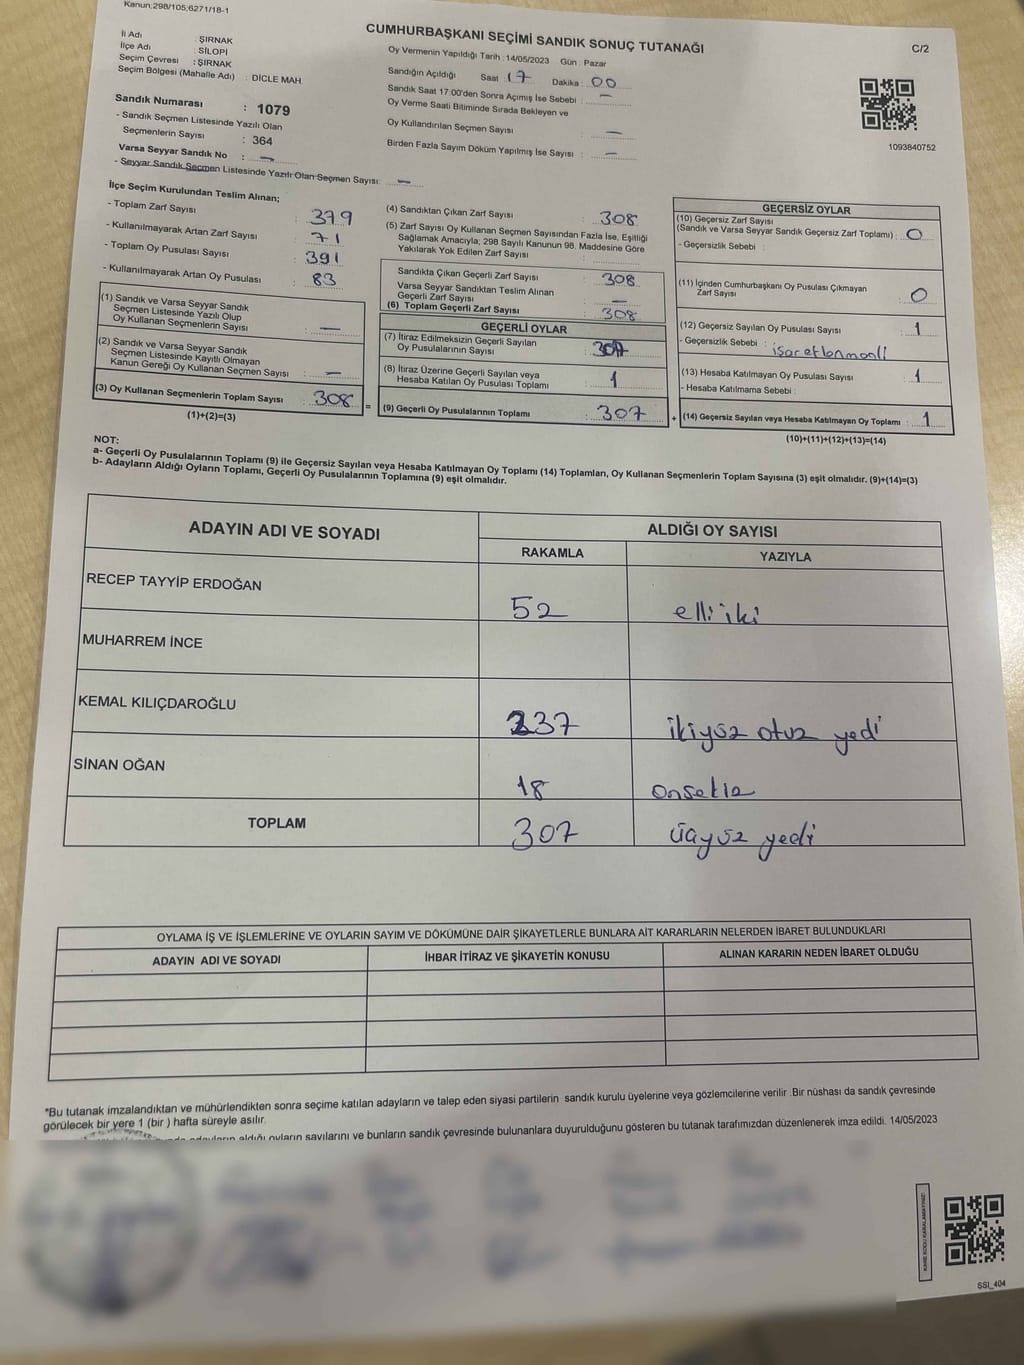 Kanun:298/105;6271/18-1
CUMHURBAŞKANI SEÇİMİ SANDIK SONUÇ TUTANAĞI
C/2
İl Adı : ŞIRNAK
İlçe Adı : SİLOPİ
Seçim Çevresi : ŞIRNAK
Seçim Bölgesi (Mahalle Adı) : DİCLE MAH.
Oy Vermenin Yapıldığı Tarih :14/05/2023 Gün : Pazar
Sandığın Açıldığı Saat 17 Dakika : 00
Sandık Saat 17:00'den Sonra Açımış İse Sebebi : —
Oy Verme Saati Bitiminde Sırada Bekleyen ve
Oy Kullandırılan Seçmen Sayısı : —
Birden Fazla Sayım Döküm Yapılmış İse Sayısı : —
1093840752
Sandık Numarası : 1079
- Sandık Seçmen Listesinde Yazılı Olan
Seçmenlerin Sayısı : 364
Varsa Seyyar Sandık No : —
- Seyyar Sandık Seçmen Listesinde Yazılı Olan Seçmen Sayısı: —
İlçe Seçim Kurulundan Teslim Alınan;
- Toplam Zarf Sayısı : 379
- Kullanılmayarak Artan Zarf Sayısı : 71
- Toplam Oy Pusulası Sayısı : 391
- Kullanılmayarak Artan Oy Pusulası : 83
(1) Sandık ve Varsa Seyyar Sandık
Seçmen Listesinde Yazılı Olup
Oy Kullanan Seçmenlerin Sayısı : —
(2) Sandık ve Varsa Seyyar Sandık
Seçmen Listesinde Kayıtlı Olmayan
Kanun Gereği Oy Kullanan Seçmen Sayısı : —
(3) Oy Kullanan Seçmenlerin Toplam Sayısı : 308
(1)+(2)=(3)
=
(4) Sandıktan Çıkan Zarf Sayısı : 308
(5) Zarf Sayısı Oy Kullanan Seçmen Sayısından Fazla İse, Eşitliği
Sağlamak Amacıyla; 298 Sayılı Kanunun 98. Maddesine Göre
Yakılarak Yok Edilen Zarf Sayısı :
Sandıkta Çıkan Geçerli Zarf Sayısı : 308
Varsa Seyyar Sandıktan Teslim Alınan
Geçerli Zarf Sayısı : —
(6) Toplam Geçerli Zarf Sayısı : 308
GEÇERLİ OYLAR
(7) İtiraz Edilmeksizin Geçerli Sayılan
Oy Pusulalarının Sayısı :
(8) İtiraz Üzerine Geçerli Sayılan veya
Hesaba Katılan Oy Pusulası Toplamı : 1
(9) Geçerli Oy Pusulalarının Toplamı : 307
+
GEÇERSİZ OYLAR
(10) Geçersiz Zarf Sayısı
(Sandık ve Varsa Seyyar Sandık Geçersiz Zarf Toplamı) : 0
- Geçersizlik Sebebi :
(11) İçinden Cumhurbaşkanı Oy Pusulası Çıkmayan
Zarf Sayısı : 0
(12) Geçersiz Sayılan Oy Pusulası Sayısı : 1
- Geçersizlik Sebebi :
(13) Hesaba Katılmayan Oy Pusulası Sayısı : 1
- Hesaba Katılmama Sebebi :
(14) Geçersiz Sayılan veya Hesaba Katılmayan Oy Toplamı : 1
(10)+(11)+(12)+(13)=(14)
NOT:
a- Geçerli Oy Pusulalarının Toplamı (9) ile Geçersiz Sayılan veya Hesaba Katılmayan Oy Toplamı (14) Toplamları, Oy Kullanan Seçmenlerin Toplam Sayısına (3) eşit olmalıdır. (9)+(14)=(3)
b- Adayların Aldığı Oyların Toplamı, Geçerli Oy Pusulalarının Toplamına (9) eşit olmalıdır.
ADAYIN ADI VE SOYADI
ALDIĞI OY SAYISI
RAKAMLA YAZIYLA
RECEP TAYYİP ERDOĞAN 52 elli iki
MUHARREM İNCE
KEMAL KILIÇDAROĞLU 237 ikiyüz otuz yedi
SİNAN OĞAN 18 onsekiz
TOPLAM 307 üçyüz yedi
OYLAMA İŞ VE İŞLEMLERİNE VE OYLARIN SAYIM VE DÖKÜMÜNE DAİR ŞİKAYETLERLE BUNLARA AİT KARARLARIN NELERDEN İBARET BULUNDUKLARI
ADAYIN ADI VE SOYADI İHBAR İTİRAZ VE ŞİKAYETİN KONUSU ALINAN KARARIN NEDEN İBARET OLDUĞU
*Bu tutanak imzalandıktan ve mühürlendikten sonra seçime katılan adayların ve talep eden siyasi partilerin sandık kurulu üyelerine veya gözlemcilerine verilir .Bir nüshası da sandık çevresinde
görülecek bir yere 1 (bir ) hafta süreyle asılır.
adayların aldığı oyların sayılarını ve bunların sandık çevresinde bulunanlara duyurulduğunu gösteren bu tutanak tarafımızdan düzenlenerek imza edildi. 14/05/2023
KARE KODU KARALAMAYINIZ!
SSI_404